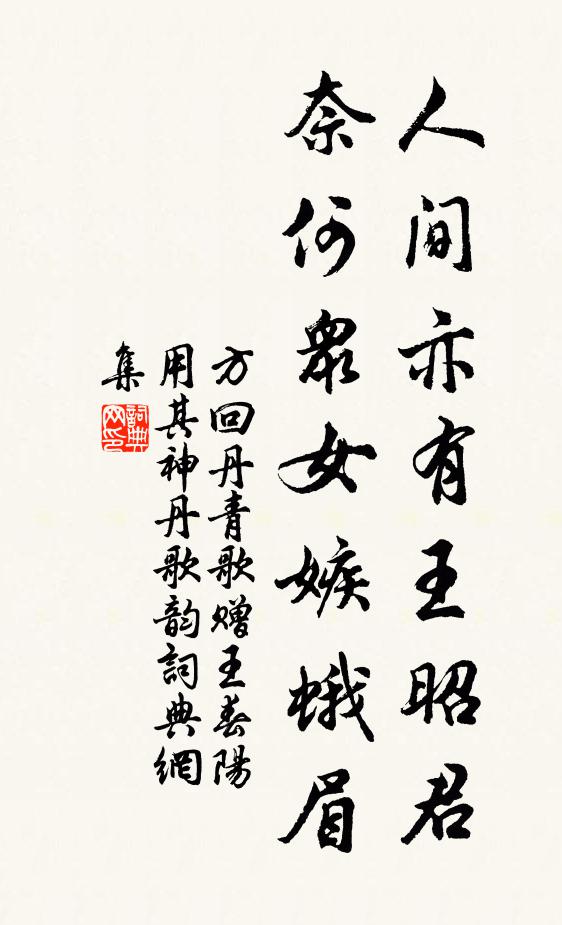 人间亦有王昭君
奈何眾女嫉蛾眉
方回丹青歌赠王春陽
用其神丹歌韵詞典網
集
詞典网印